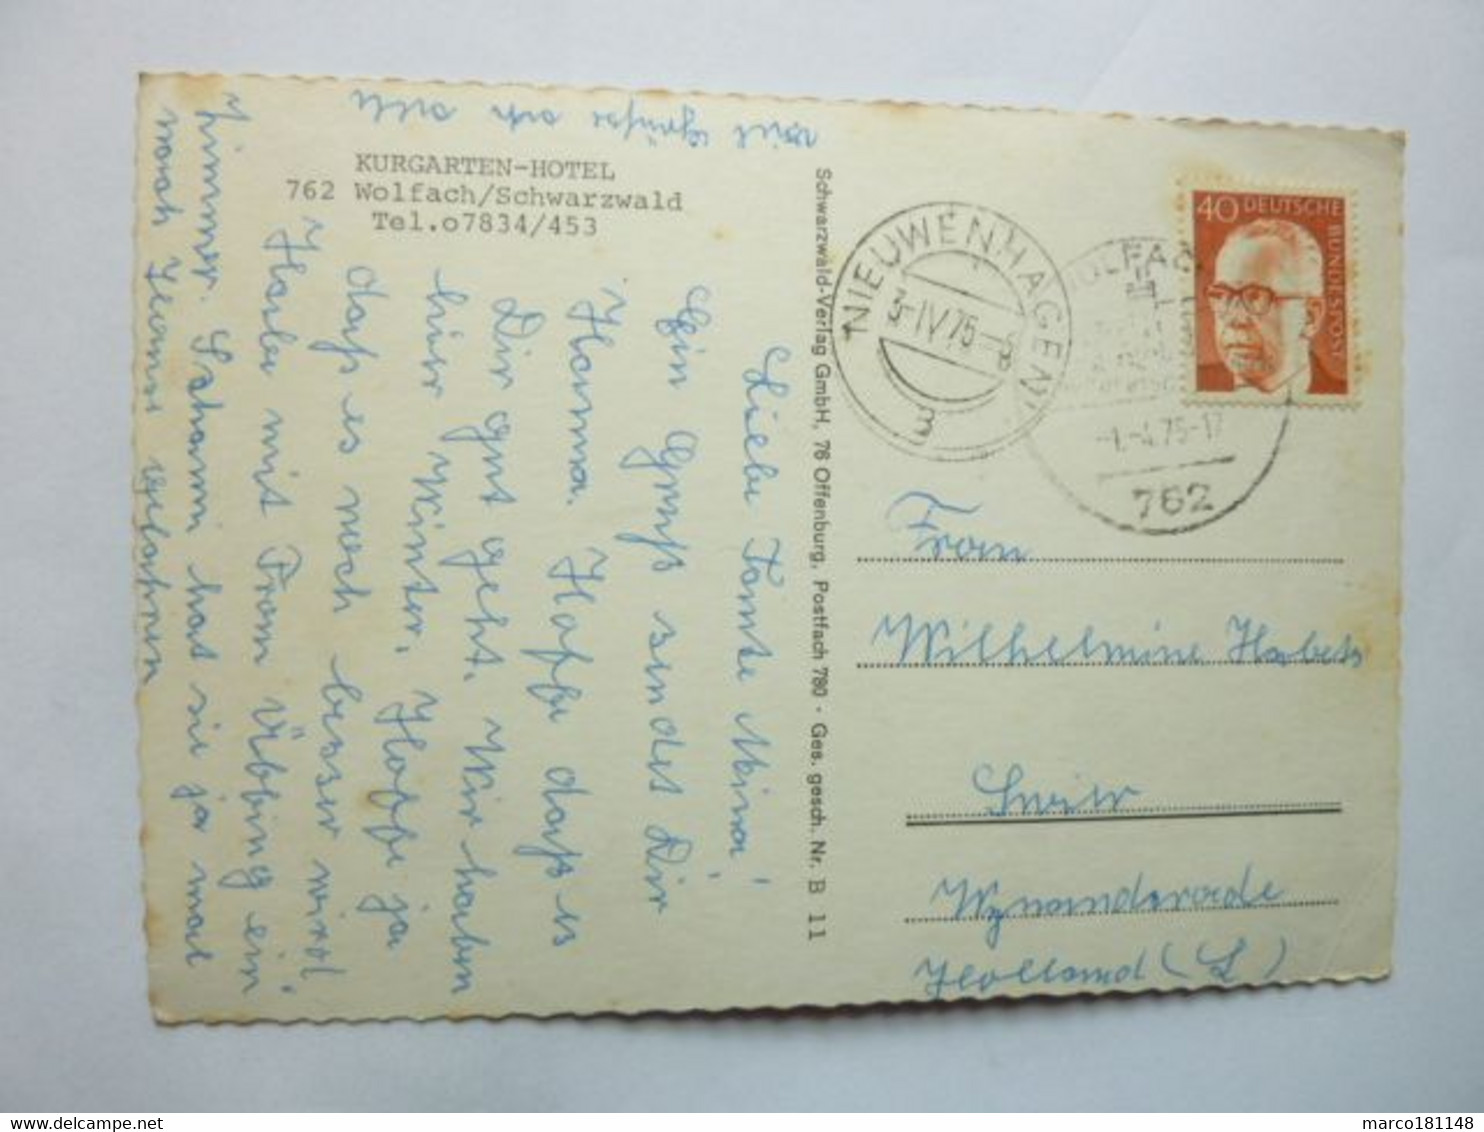 KURGARTEN-HOTEL
762 Wolfach/Schwarzwald
Tel.o7834/453
Liebe Tante Mina!
Ein Gruß sendet Dir
Hanna. Hoffe daß es
Dir gut geht. Wir haben
hier Winter. Hoffe ja
daß es noch besser wird.
Habe mit Frau Übbing ein
Zimmer. hat sie ja mal
nach Hans gefahren
viel Grüße an alle
Schwarzwald-Verlag GmbH, 76 Offenburg, Postfach 780 · Ges. gesch. Nr. B 11
40 DEUTSCHE
BUNDESPOST
NIEUWENHAGEN
3-IV 75-8
WOLFACH
-1.-4.75-17
762
Frau
Wilhelmine Habets
Wynandsrade
Holland (L)
marco181148